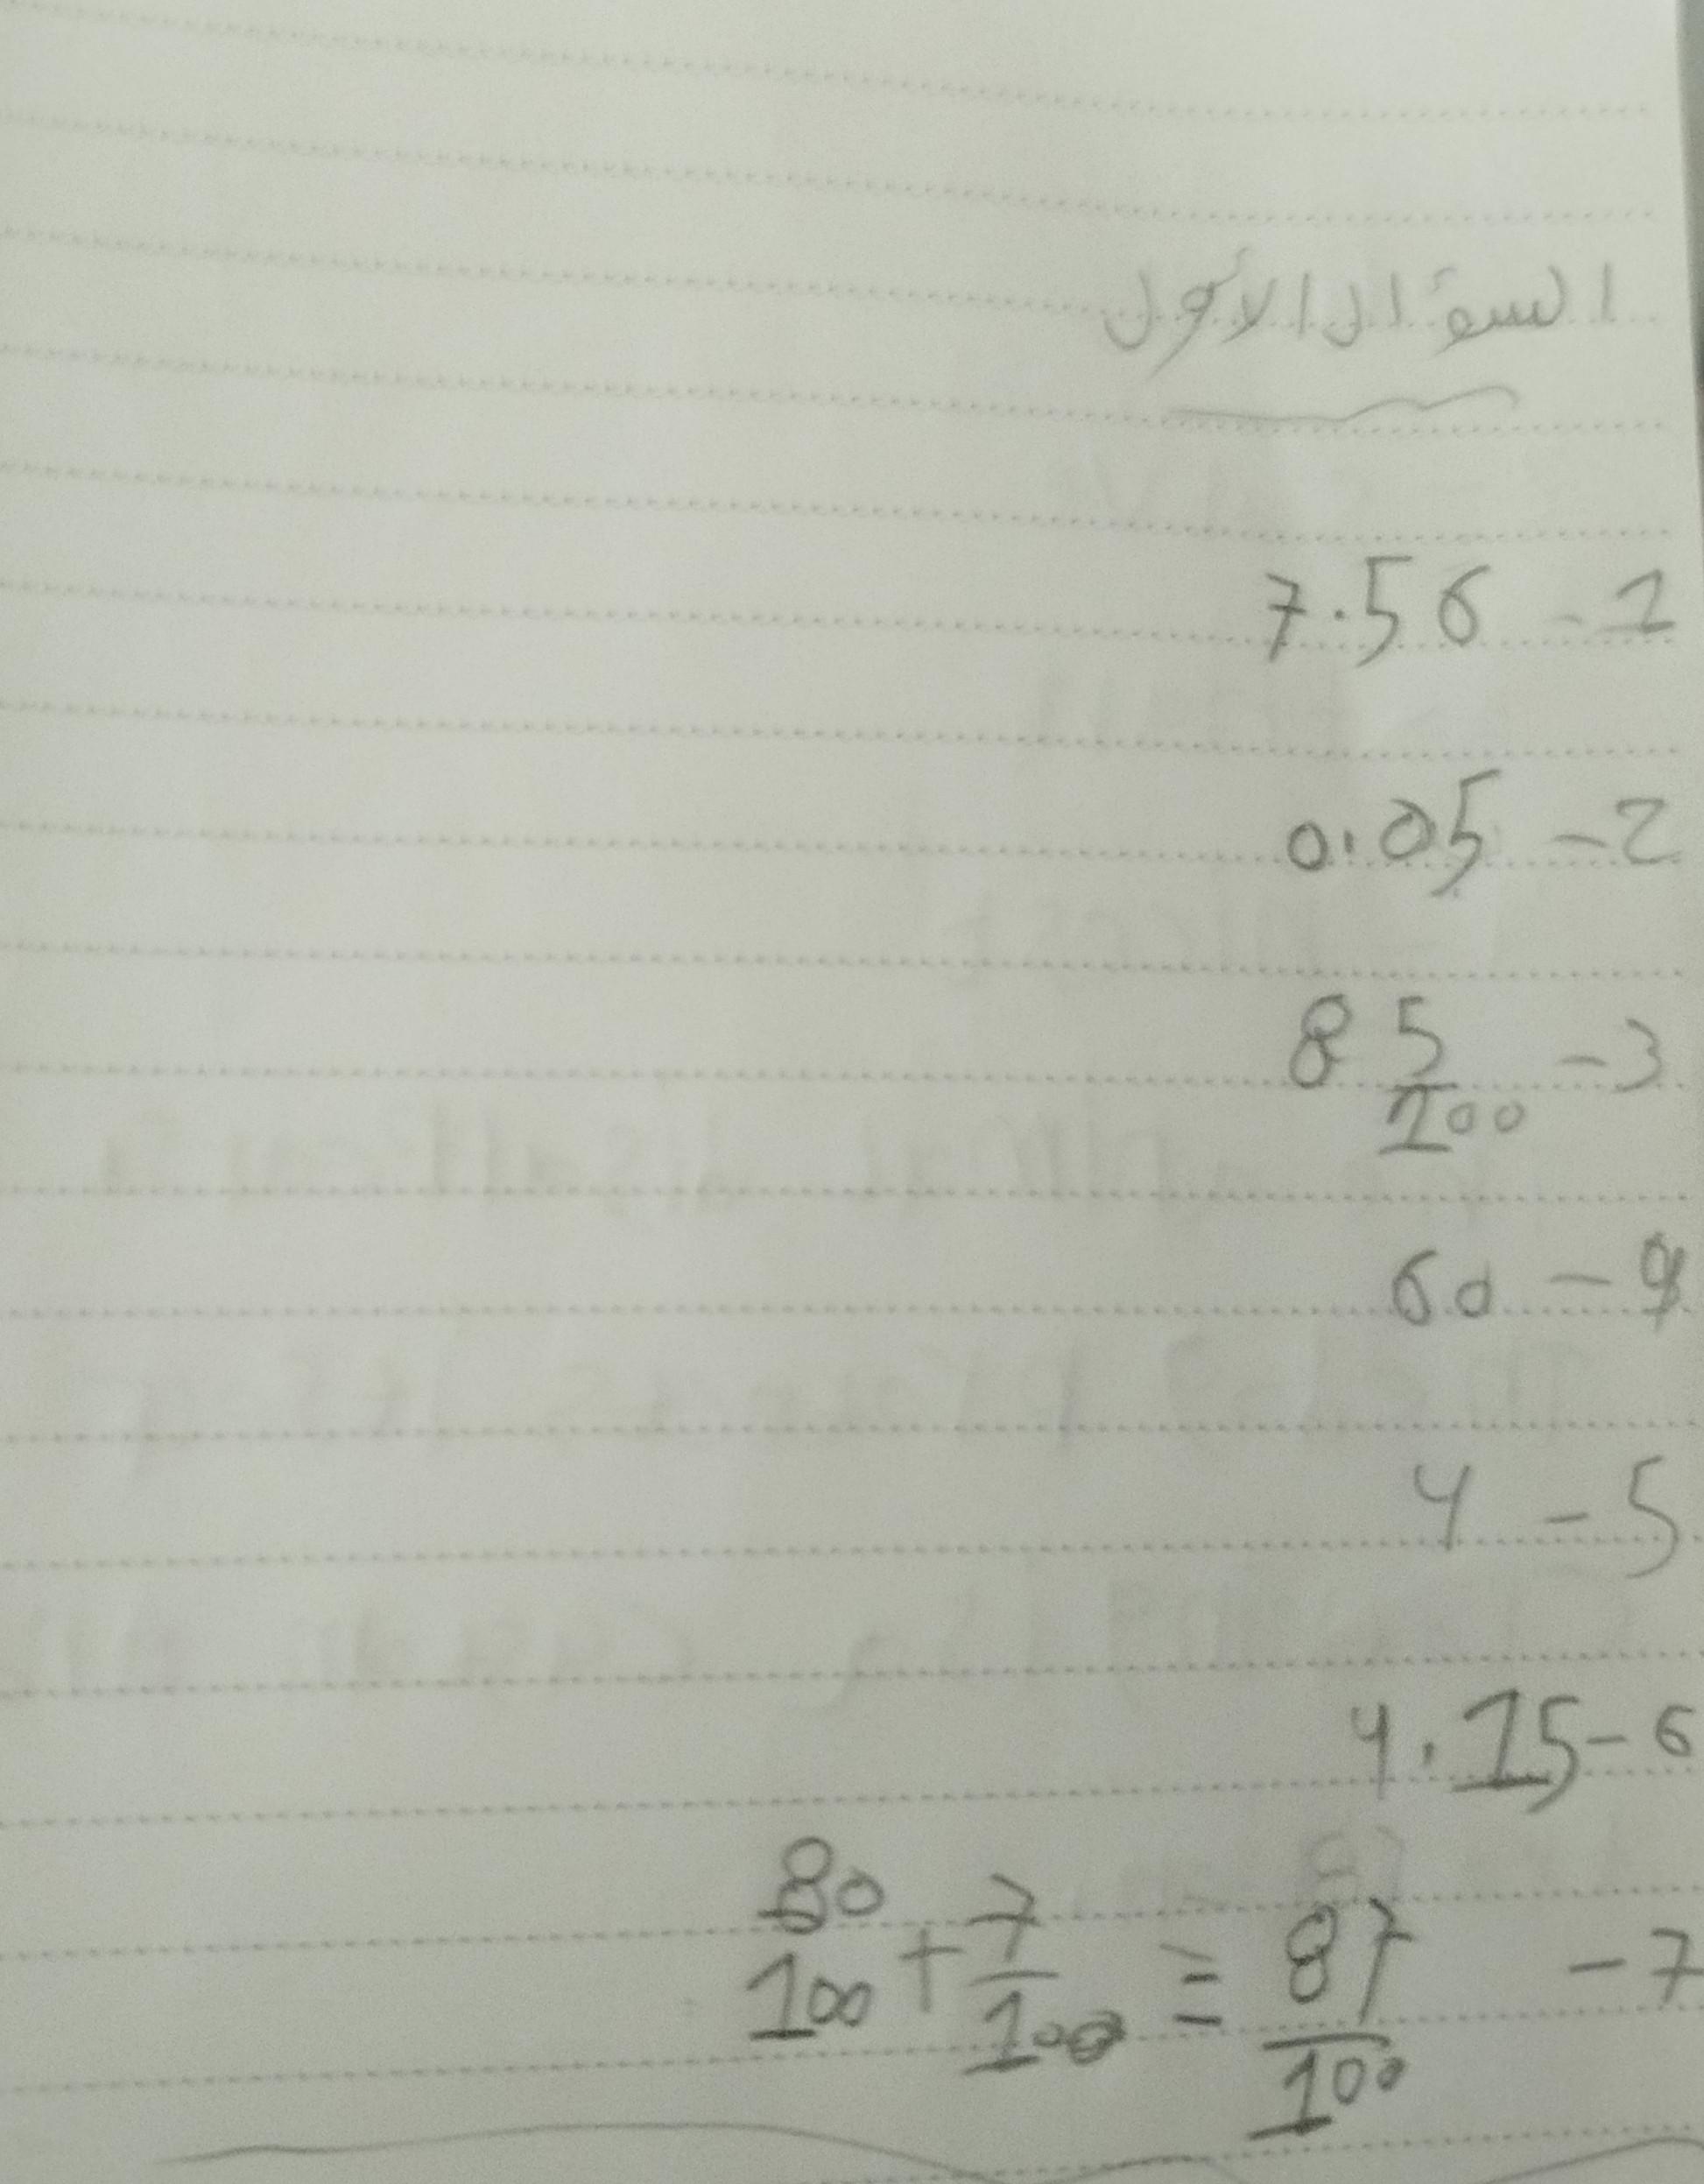 السؤال الأول
7.56 - 1
0.05 - 2
8 5/100 - 3
60 - 4
4 - 5
4.15 - 6
80/100 + 7/100 = 87/100 - 7